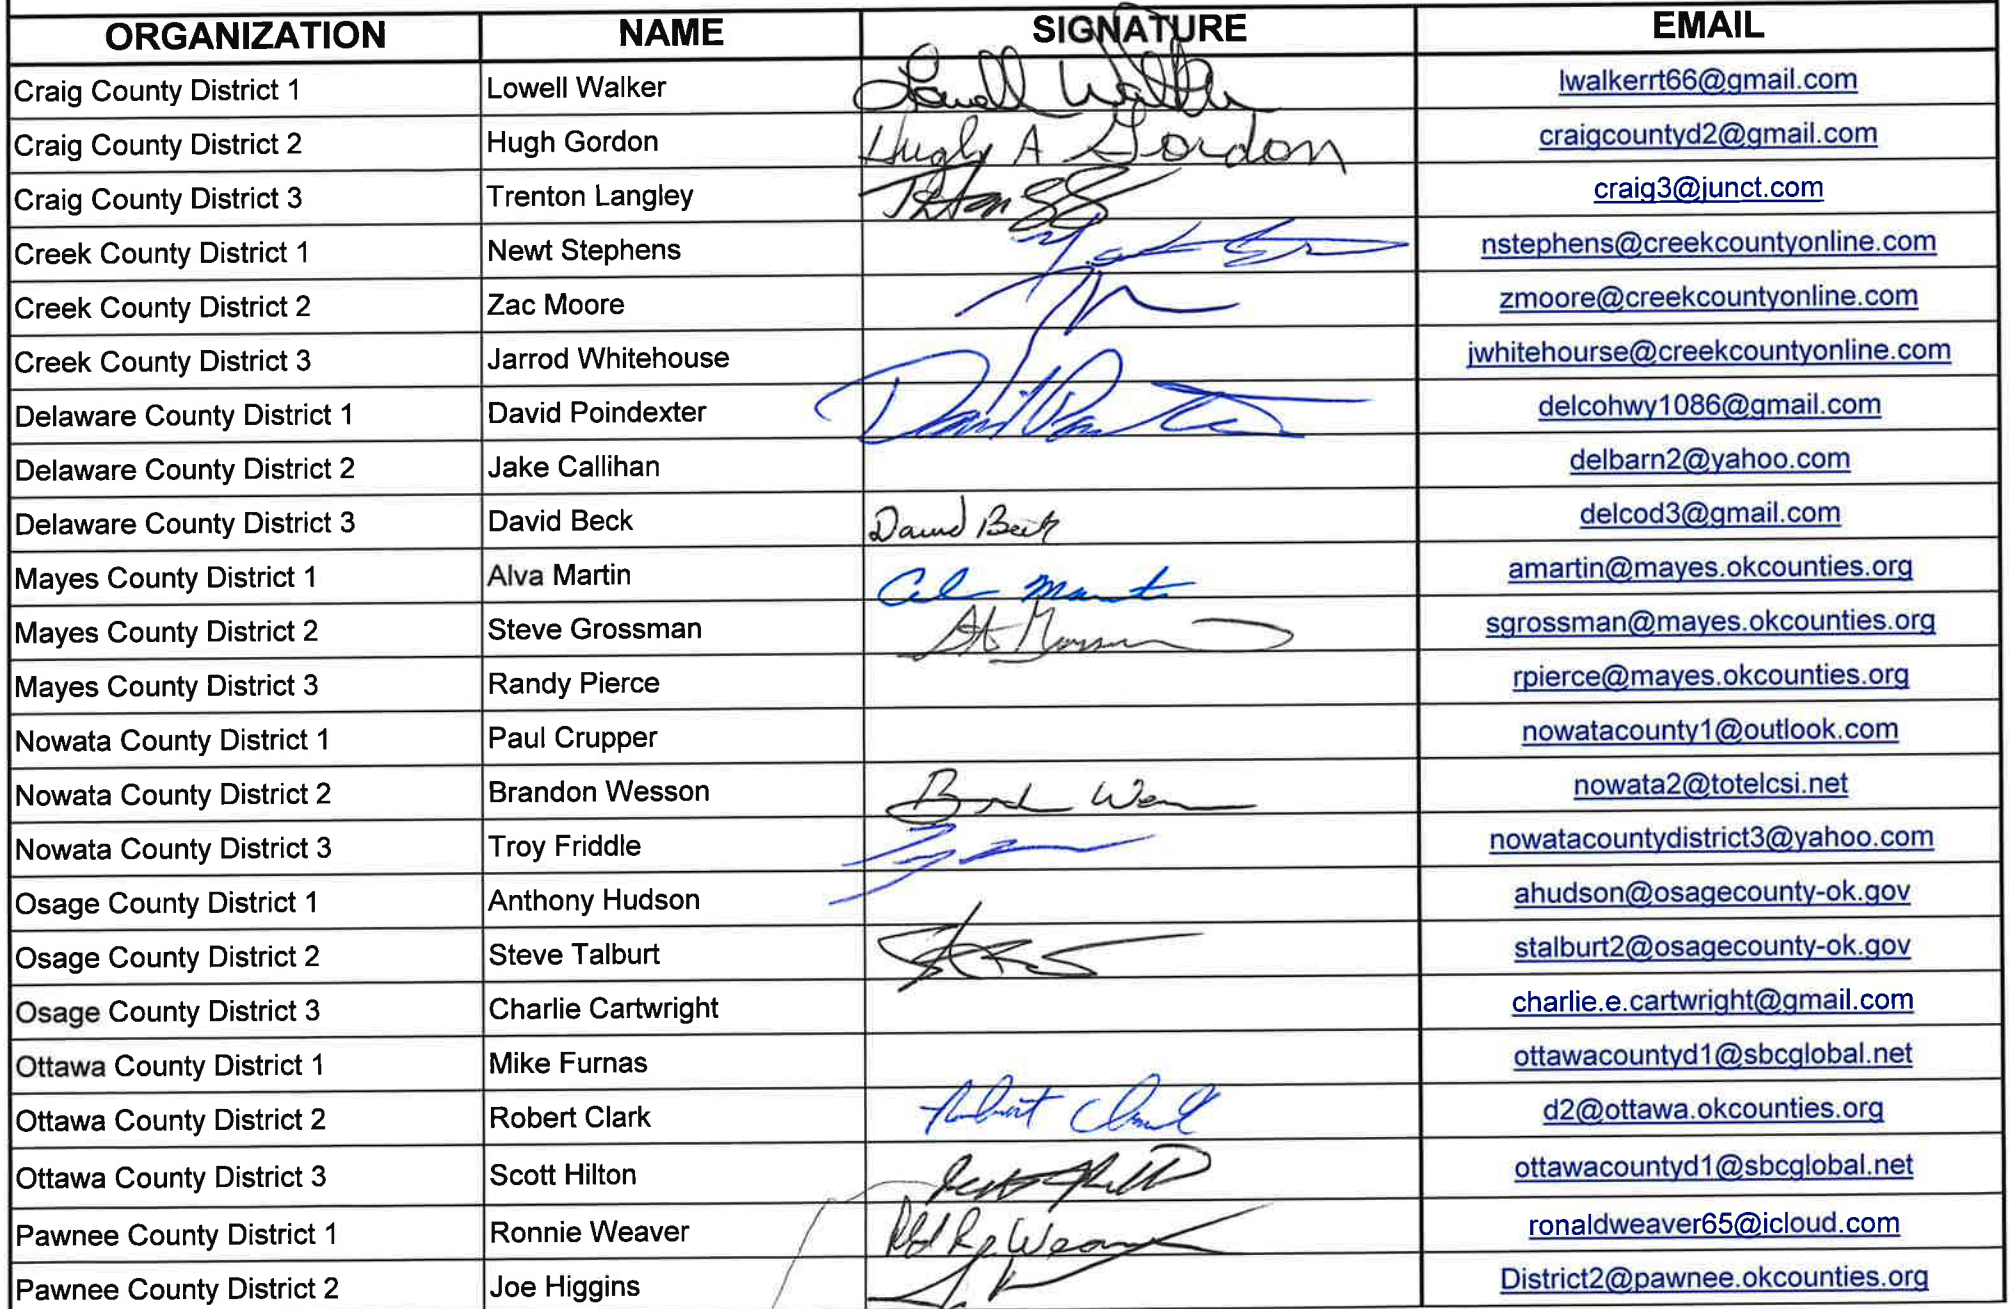 ORGANIZATION NAME SIGNATURE EMAIL
Craig County District 1 Lowell Walker Lowell Walker lwalkerrt66@gmail.com
Craig County District 2 Hugh Gordon Hugh A Gordon craigcountyd2@gmail.com
Craig County District 3 Trenton Langley craig3@junct.com
Creek County District 1 Newt Stephens nstephens@creekcountyonline.com
Creek County District 2 Zac Moore zmoore@creekcountyonline.com
Creek County District 3 Jarrod Whitehouse jwhitehourse@creekcountyonline.com
Delaware County District 1 David Poindexter delcohwy1086@gmail.com
Delaware County District 2 Jake Callihan delbarn2@yahoo.com
Delaware County District 3 David Beck David Beck delcod3@gmail.com
Mayes County District 1 Alva Martin amartin@mayes.okcounties.org
Mayes County District 2 Steve Grossman sgrossman@mayes.okcounties.org
Mayes County District 3 Randy Pierce rpierce@mayes.okcounties.org
Nowata County District 1 Paul Crupper nowatacounty1@outlook.com
Nowata County District 2 Brandon Wesson nowata2@totelcsi.net
Nowata County District 3 Troy Friddle nowatacountydistrict3@yahoo.com
Osage County District 1 Anthony Hudson ahudson@osagecounty-ok.gov
Osage County District 2 Steve Talburt stalburt2@osagecounty-ok.gov
Osage County District 3 Charlie Cartwright charlie.e.cartwright@gmail.com
Ottawa County District 1 Mike Furnas ottawacountyd1@sbcglobal.net
Ottawa County District 2 Robert Clark Robert Clark d2@ottawa.okcounties.org
Ottawa County District 3 Scott Hilton ottawacountyd1@sbcglobal.net
Pawnee County District 1 Ronnie Weaver ronaldweaver65@icloud.com
Pawnee County District 2 Joe Higgins District2@pawnee.okcounties.org